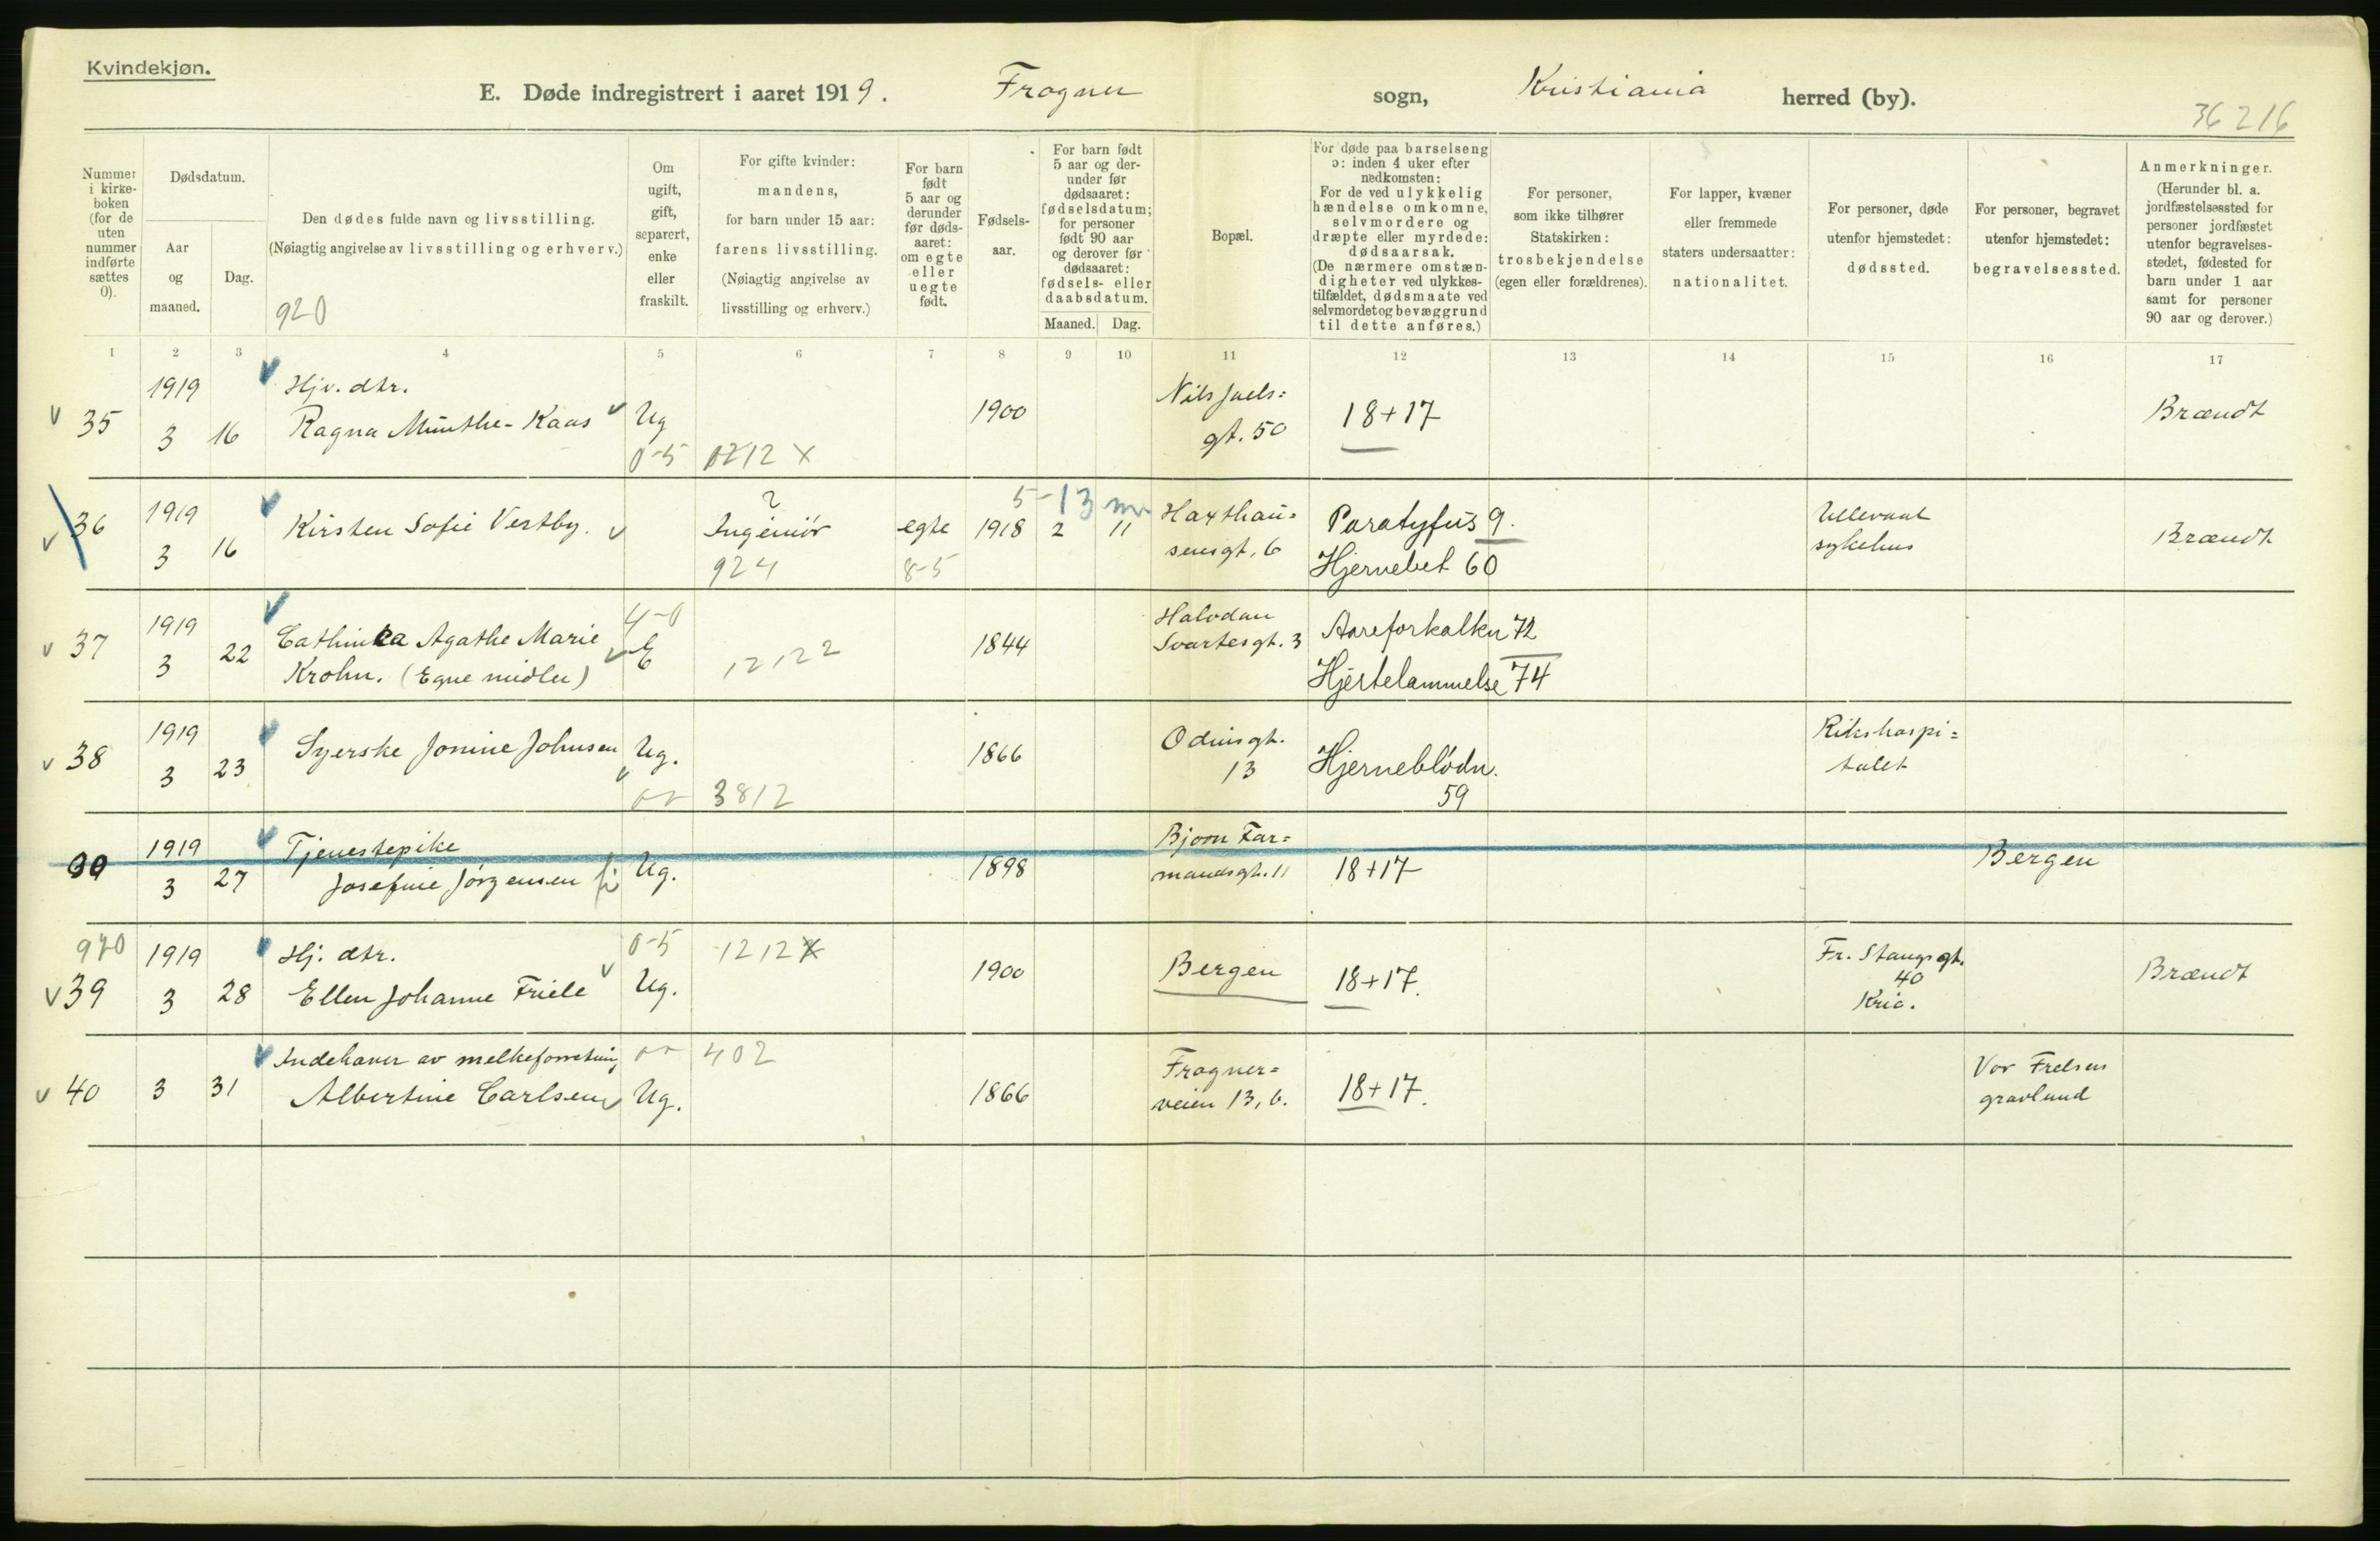 Kvindekjøn.
E. Døde indregistrert i aaret 1919. Frogner sogn, Kristiania herred (by).
36 216
Nummer
i kirke-
boken
(for de
uten
nummer
indførte
sættes
0).
Dødsdatum.
Aar
og
maaned.
Dag.
Den dødes fulde navn og livsstilling.
(Nøiagtig angivelse av livsstilling og erhverv.)
920
Om
ugift,
gift,
separert,
enke
eller
fraskilt.
For gifte kvinder:
mandens,
for barn under 15 aar:
farens livsstilling.
(Nøiagtig angivelse av
livsstilling og erhverv.)
For barn
født
5 aar og
derunder
før døds-
aaret:
om egte
eller
uegte
født.
Fødsels-
aar.
For barn født
5 aar og der-
under før
dødsaaret:
fødselsdatum;
for personer
født 90 aar
og derover før
dødsaaret:
fødsels- eller
daabsdatum.
Maaned. Dag.
Bopæl.
For døde paa barselseng
ɔ: inden 4 uker efter
nedkomsten:
For de ved ulykkelig
hændelse omkomne,
selvmordere og
dræpte eller myrdede:
dødsaarsak.
(De nærmere omstæn-
digheter ved ulykkes-
tilfældet, dødsmaate ved
selvmordet og bevæggrund
til dette anføres.)
For personer,
som ikke tilhører
Statskirken:
trosbekjendelse
(egen eller forældrenes).
For lapper, kvæner
eller fremmede
staters undersaatter:
nationalitet.
For personer, døde
utenfor hjemstedet:
dødssted.
For personer, begravet
utenfor hjemstedet:
begravelsessted.
Anmerkninger.
(Herunder bl. a.
jordfæstelsessted for
personer jordfæstet
utenfor begravelses-
stedet, fødested for
barn under 1 aar
samt for personer
90 aar og derover.)
1 2 3 4 5 6 7 8 9 10 11 12 13 14 15 16 17
35
1919
3 16
Hjv. dtr.
Ragna Munthe-Kaas
Ug
0-5
1212 x
1900
Nils Juels=
gt. 50
18+17
Brændt
36
1919
3 16
Kirsten Sofie Vestby.
2
Ingeniør
924
egte
8-5
5-13 m
1918 2 11
Haxthau=
sensgt. 6
Paratyfus 9.
Hjernebet 60
Ullevaal
sykehus
Brændt
37
1919
3 22
Cathinca Agathe Marie
Krohn. (Egne midler)
4-0
E
12122
1844
Halvdan
Svartesgt. 3
Aareforkalkn 72
Hjertelammelse 74
38
1919
3 23
Syerske Jonine Johnsen
Ug.
3812
1866
Odinsgt.
13
Hjerneblödn.
59
Rikshospi=
talet
39
1919
3 27
Tjenestepike
Josefine Jörgensen
Ug.
1898
Bjorn Far=
mandsgt. 11
18+17
Bergen
920
39
1919
3 28
Hj. dtr.
Ellen Johanne Friele
0-5
Ug.
1212 x
1900
Bergen
18+17.
Fr. Stangsgt.
40
Kria.
Brændt
40
3 31
Indehaver av melkeforretning
Albertine Carlsen
Ug.
402
1866
Frogner=
veien 13, b.
18+17.
Vor Frelsers
gravlund